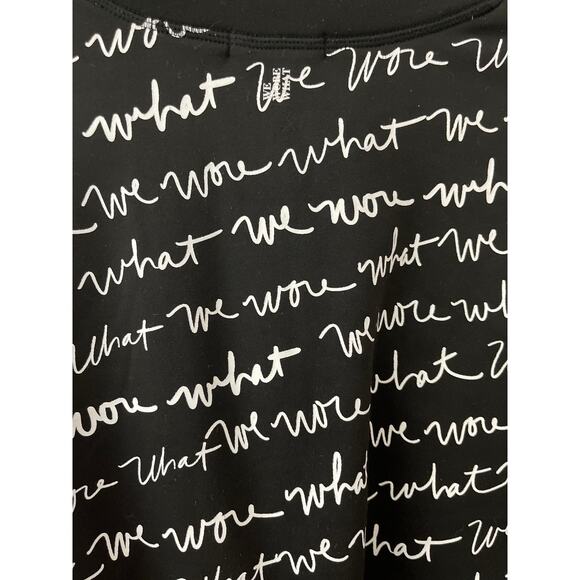 we wore
what we wore wh
WE WORE WHAT
we wore what we
what we wore wh
What we wore what we
wore what we wore wh
wore What we wore what we
wore what we wore
we wore what we what
we what we